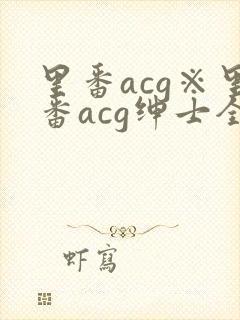 里番acg※里
番acg绅士全
虾寫